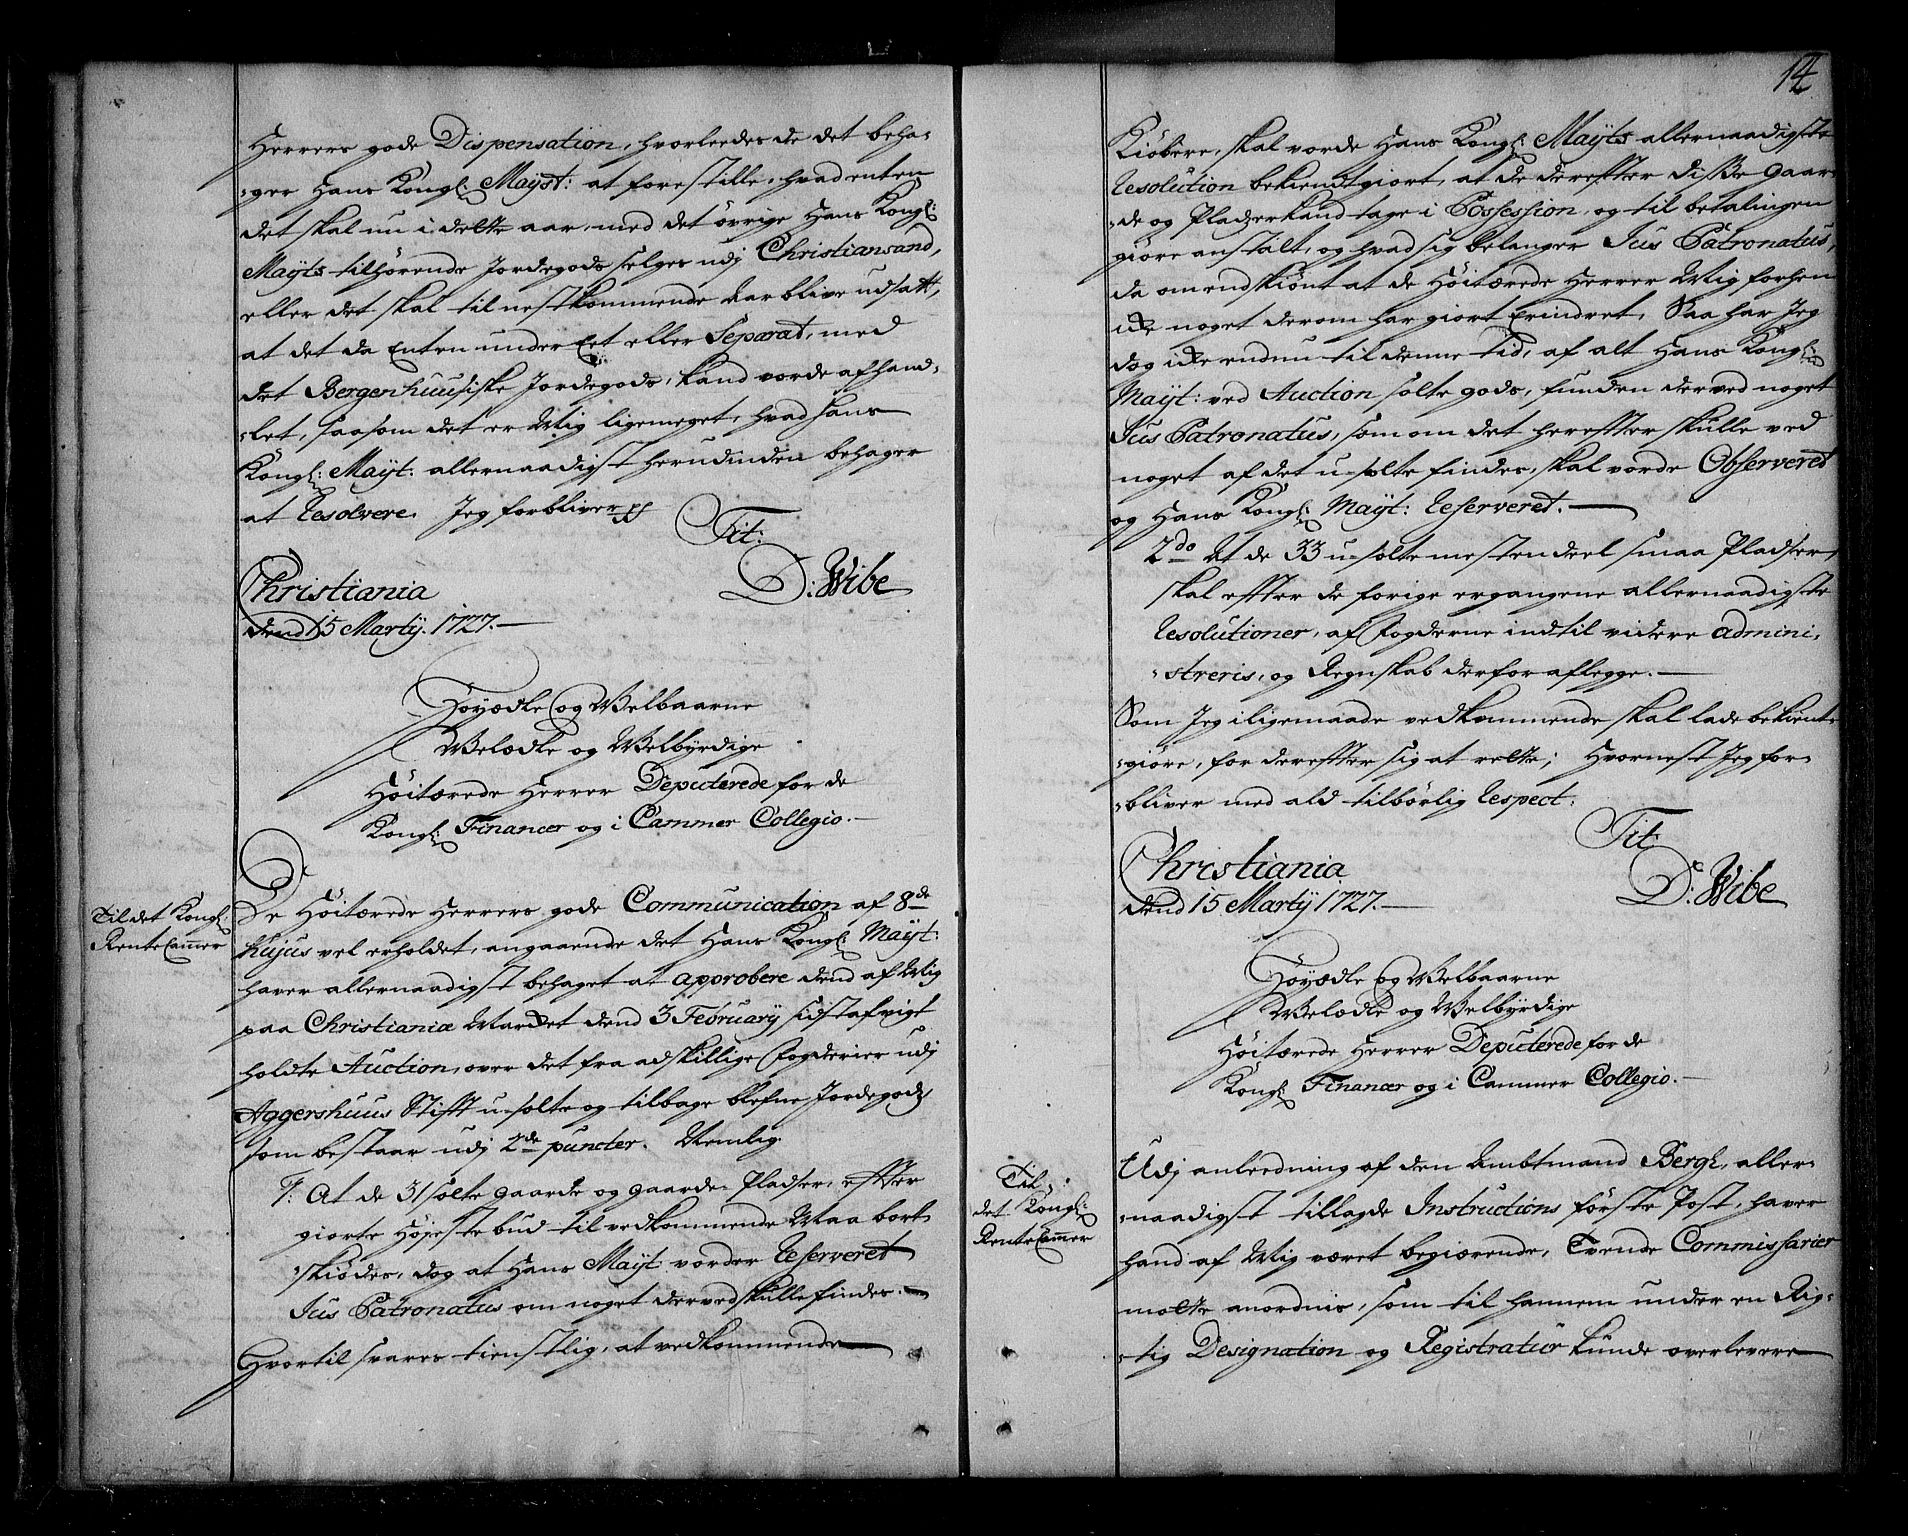 Herrers gode Dispensation, hvorleedes de det beha-
-ger Hans Kongl: Mayst: at forestille, hvad enten
det skal nu i dette aar, med det övrige Hans Kongl:
Mayts tilhörende Jordegods selges udj Christiansand,
eller det skal til nestkommende Aar blive udsatt,
at det da Enten under Eet eller Separat, med
det Bergenhuusiske Jordegods, kand vorde afhand-
-let, saasom det er Mig ligemeget, hvad Hans
Kongl: Mayt: allernaadigst herudinden behager
at Resolvere. Jeg forbliver pp
Tit:
D: Wibe
Christiania
dend 15 Martij. 1727.
Höyædle og Welbaarne
Welædle og Welbyrdige
Höitærede Herrer Deputerede for de
Kongl: Financer og i Cammer Collegio.
Til det Kongl:
Rente Cam̄er
De Höitærede Herrers gode Communication af 8de
hujus vel erholdet, angaaende det Hans Kongl: Mayt:
haver allernaadigst behaget at approbere dend af Mig
paa Christianiæ Marcket dend 3 February sidst afvigt
holdte Auction, over det fra adskillige Fogderier udj
Aggershuus Stifft u-solte og tilbage blefne Jordegods
som bestaar udj 2de puncter. Nemlig
1: At de 31 solte gaarde og gaarde-Pladser, effter
giorte Höyeste bud til vedkommende Maa bort
-skiödes, dog at Hans Mayt vorder Reserveret
Jus Patronatus om noget derved skulle findes.
Hvortil svares tienstlig, at vedkommende
14
Kiöbere, skal vorde Hans Kongl: Mayts allernaadigste
Resolution bekiendtgiort, at de dereffter disse gaar-
-de og Pladzer kand tage i Possession, og til betalingen
giöre anstalt, og hvad sig belanger Jus Patronatus,
da omendskiönt at de Höitærede Herrer Mig forhen
icke noget derom har giort Erindret, Saa har Jeg
dog icke endnu til denne tid, af alt Hans Kongl:
Mayt: ved Auction solte gods, funden derved noget
Jus Patronatus, som om det hereffter skulle ved
noget af det u-solte findes, skal vorde Observeret
og Hans Kongl: Mayt: Reserveret.
2do At de 33 u-solte mestendeel smaa Pladser,
skal effter de forige ergangene allernaadigste
Resolutioner, af Fogderne indtil videre admini-
-streris, og Regnskab derfor aflegge.
Som Jeg iligemaade vedkommende skal lade bekient-
-giöre, for dereffter sig at rette; Hvornest Jeg for-
-bliver med ald tilbörlig Respect:
Tit:
D: Wibe
Christiania
dend 15 Martij 1727.
Höyædle og Welbaarne
Welædle og Welbyrdige
Höitærede Herrer Deputerede for de
Kongl: Financer og i Cammer Collegio.
Til
det Kongl:
Rente Cam̄er
Udj anleedning af den Ambtmand Bergh, aller-
-naadigst tillagde Instructions förste Post, haver
hand af Mig været begiærende, Tvende Commissarier
motte anordnis, som til hannem under en Rig-
-tig Designation og Registratur kunde overlevere